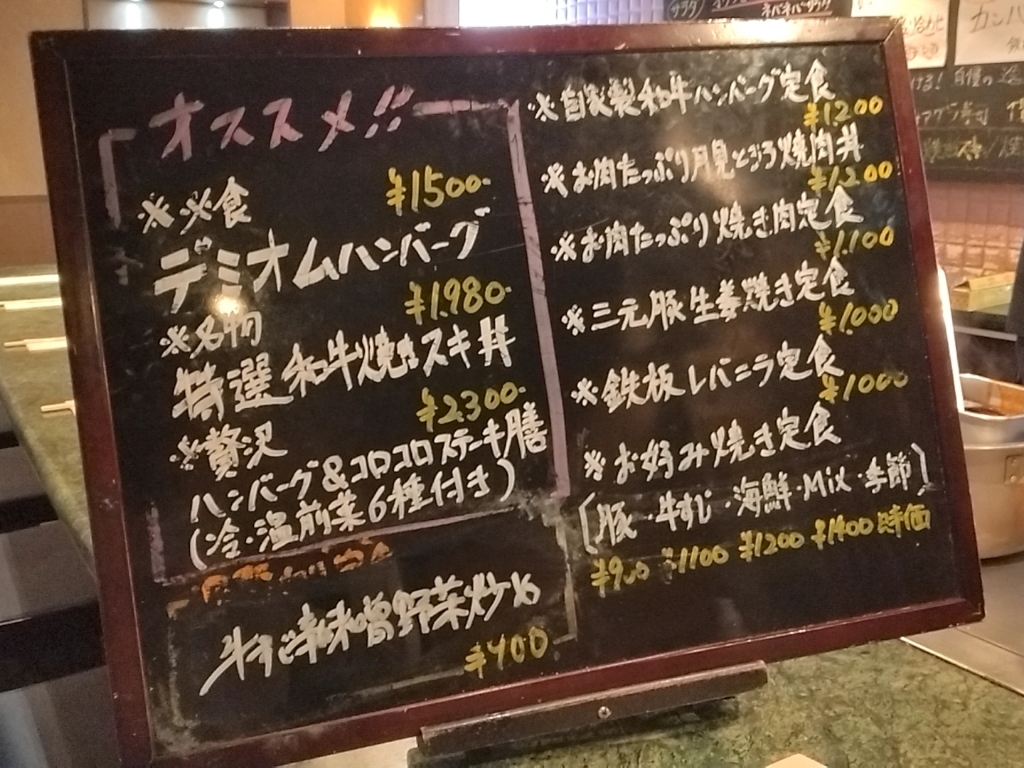 オススメ!!
※必食 ¥1500-
デミオムハンバーグ
¥1.980-
※名物
特選和牛焼きスキ丼
¥2300-
※贅沢
ハンバーグ&コロコロステーキ膳
(冷・温前菜6種付き)
味噌野菜炒め
※自家製和牛ハンバーグ定食
¥1200
※お肉たっぷり月見とろろ焼肉丼
¥1200
※お肉たっぷり焼き肉定食
¥1.100
※三元豚生姜焼き定食
¥1.000
※鉄板レバニラ定食
¥1000
※お好み焼き定食
[豚・牛すじ・海鮮・Mix・季節]
¥900 ¥1100 ¥1200 ¥1400 時価
サラダ